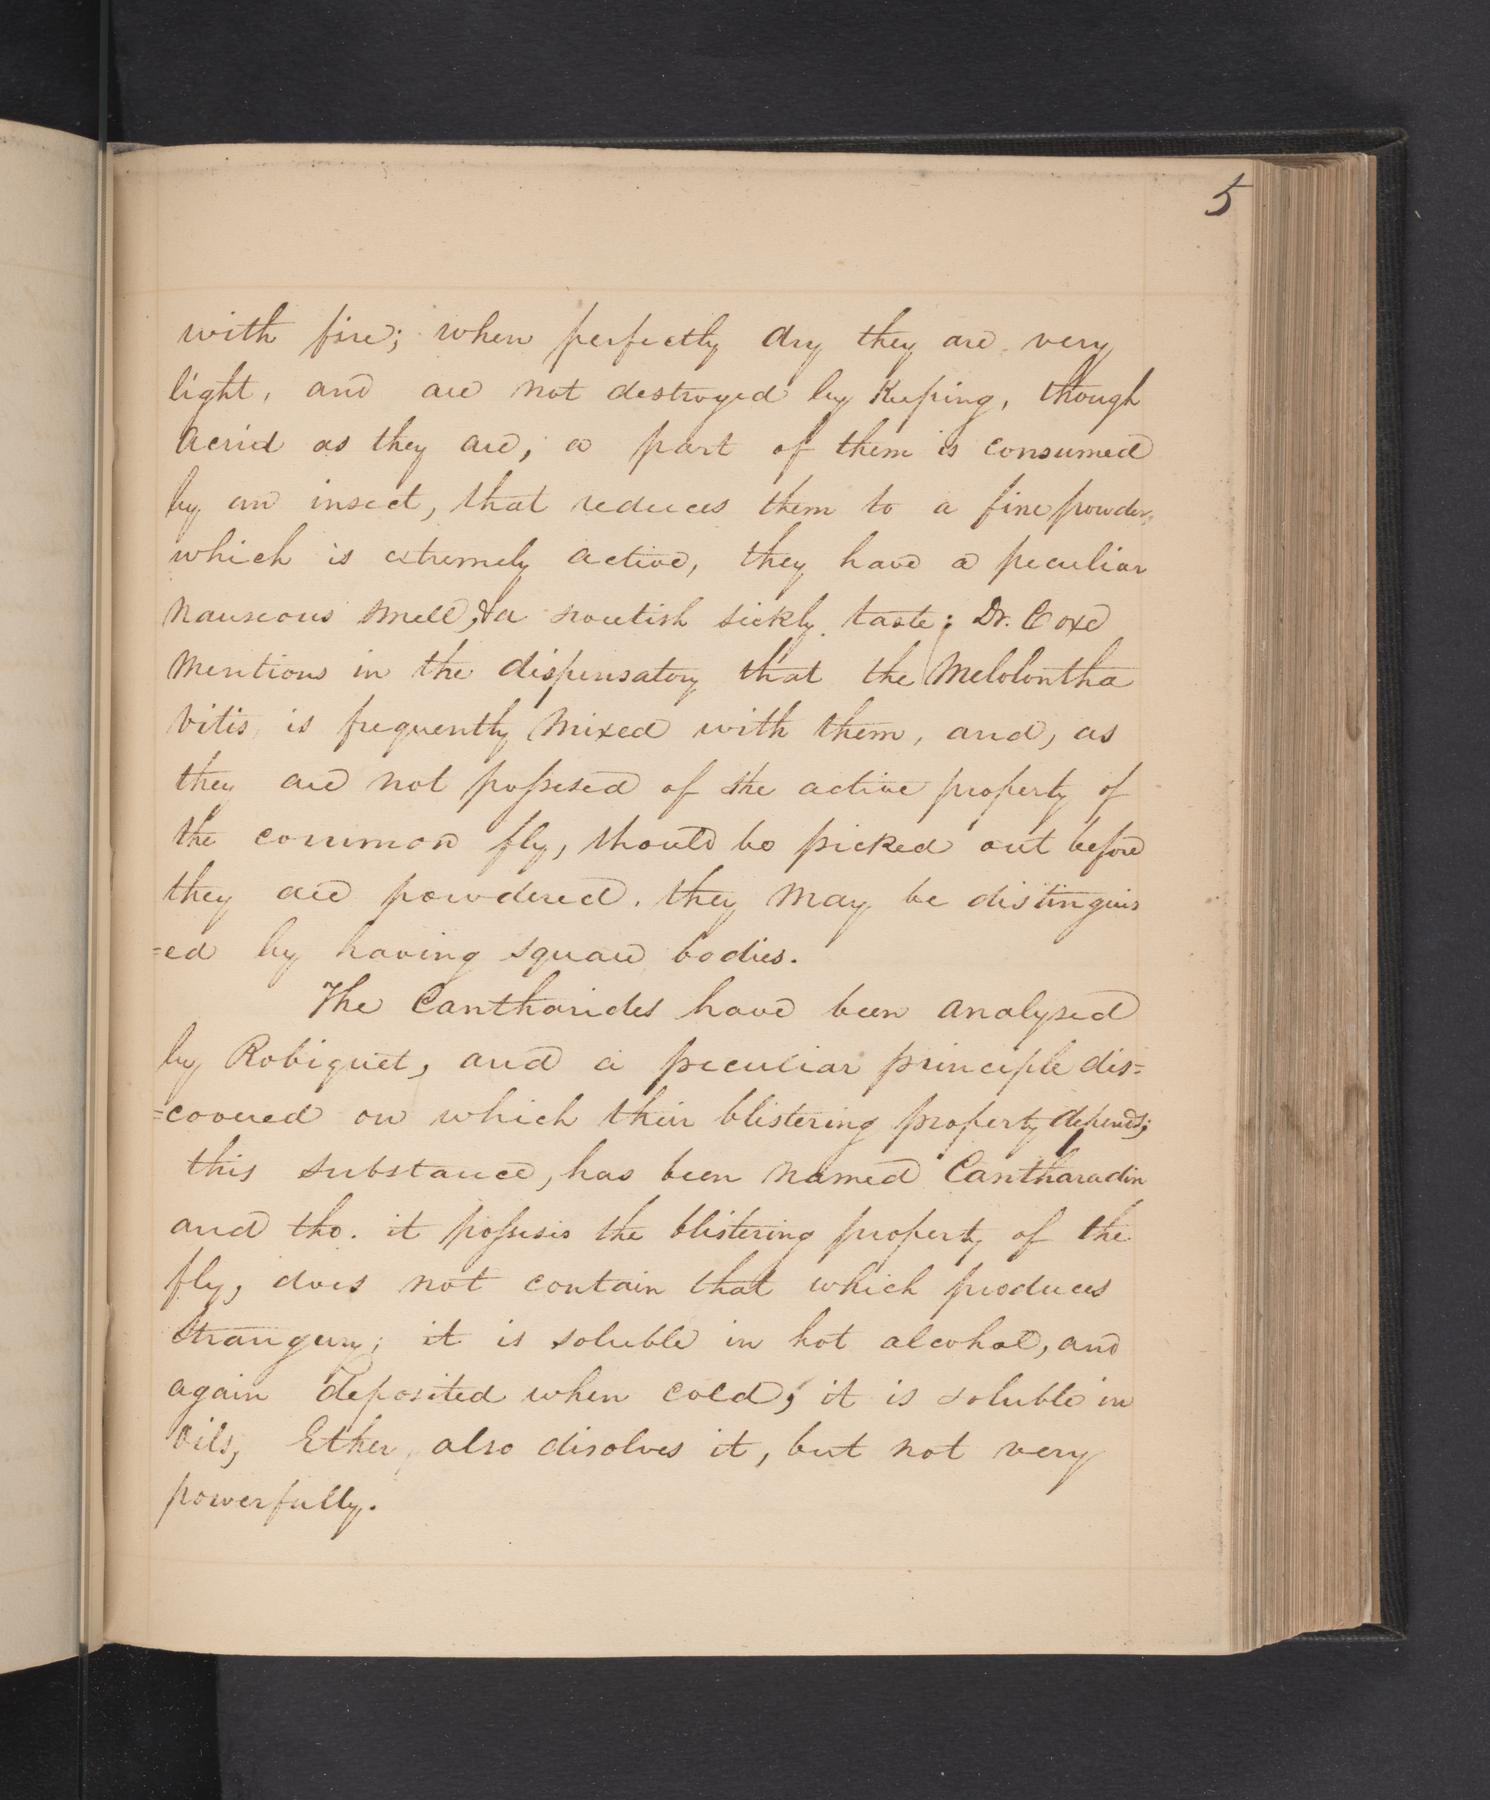 5
with fire; when perfectly dry they are very
light, and are not destroyed by Keeping, though
acrid as they are; a part of them is consumed
by an insect, that reduces them to a fine powder,
which is extremely active, they have a peculiar
nauseous smell, & a sickly taste; Dr. Coxe
mentions in the dispensatory that the Melolontha
Vitis, is frequently mixed with them, and, as
they are not possesed of the active property of
the common fly, should be picked out before
they are powdered. they may be distinguis
=ed by having square bodies.
The Cantharides have been analysed
by Robiquet, and a peculiar principle dis=
=covered on which their blistering property depends;
this substance, has been named Cantharadin
and tho. it possesis the blistering property of the
fly, does not contain that which produces
Strangury; it is soluble in hot alcohol, and
again deposited when cold; it is soluble in
Oils, Ether, also disolves it, but not very
powerfully.